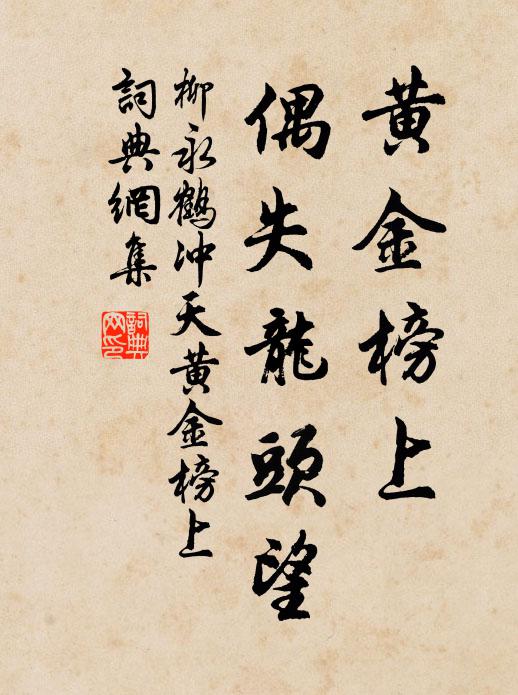 黄金榜上
偶失龍頭望
柳永鶴冲天黄金榜上
詞典網集
詞典网印